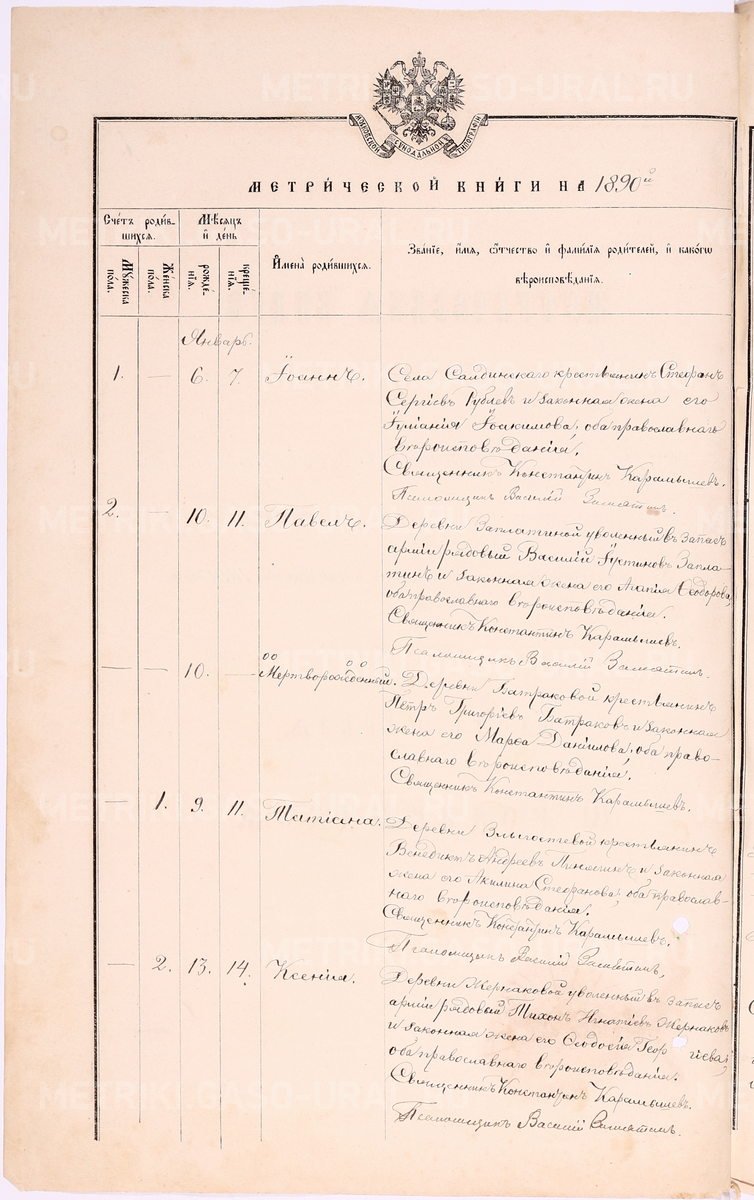 МОСКОВСКОЙ СѴНОДАЛЬНОЙ ТИПОГРАФІИ
МЕТРИ́ЧЕСКОЙ КНИ́ГИ НА 1890й
Сче́тъ роди́в-
шихся.
Мѣ́сяцъ
и́ де́нь
И҆мена̀ роди́вшихся.
Зва́нїе, и҆́мя, ѻ҆́тчество и҆ фами́лїя роди́телей, и҆ како́гѡ
вѣроисповѣ́данїѧ.
Мꙋ́жеска
по́ла.
Же́нска
по́ла.
рожде́-
нїѧ.
креще́-
нїѧ.
Январь.
1. — 6. 7. Іоаннъ. Села Салдинскаго крестьянинъ Стефанъ
Сергіевъ Рублевъ и законная жена его
Іуліанія Іоакимова, оба православнаго
вѣроисповѣданія.
Священникъ Константинъ Карамышевъ.
Псаломщикъ Василій Замятинъ.
2. — 10. 11. Павелъ. Деревни Заплатиной уволенный въ запасъ
арміи рядовый Василій Іустиновъ Запла-
тинъ и законная жена его Агапія Ѳеодорова,
оба православнаго вѣроисповѣданія.
Священникъ Константинъ Карамышевъ.
Псаломщикъ Василій Замятинъ.
— — 10. — Мертворожденный. Деревни Батраковой крестьянинъ
Петръ Григоріевъ Батраковъ и законная
жена его Марѳа Даніилова, оба право-
славнаго вѣроисповѣданія.
Священникъ Константинъ Карамышевъ.
— 1. 9. 11. Татіана. Деревни Злыгостевой крестьянинъ
Венедиктъ Андреевъ и законная
жена его Акилина Стефанова, оба православ-
наго вѣроисповѣданія.
Священникъ Константинъ Карамышевъ.
Псаломщикъ Василій Замятинъ.
— 2. 13. 14. Ксенія. Деревни Жернаковой уволенный въ запасъ
арміи рядовый Тихонъ Игнатіевъ Жернаковъ
и законная жена его Ѳеодосія Георгіева,
оба православнаго вѣроисповѣданія.
Священникъ Константинъ Карамышевъ.
Псаломщикъ Василій Замятинъ.